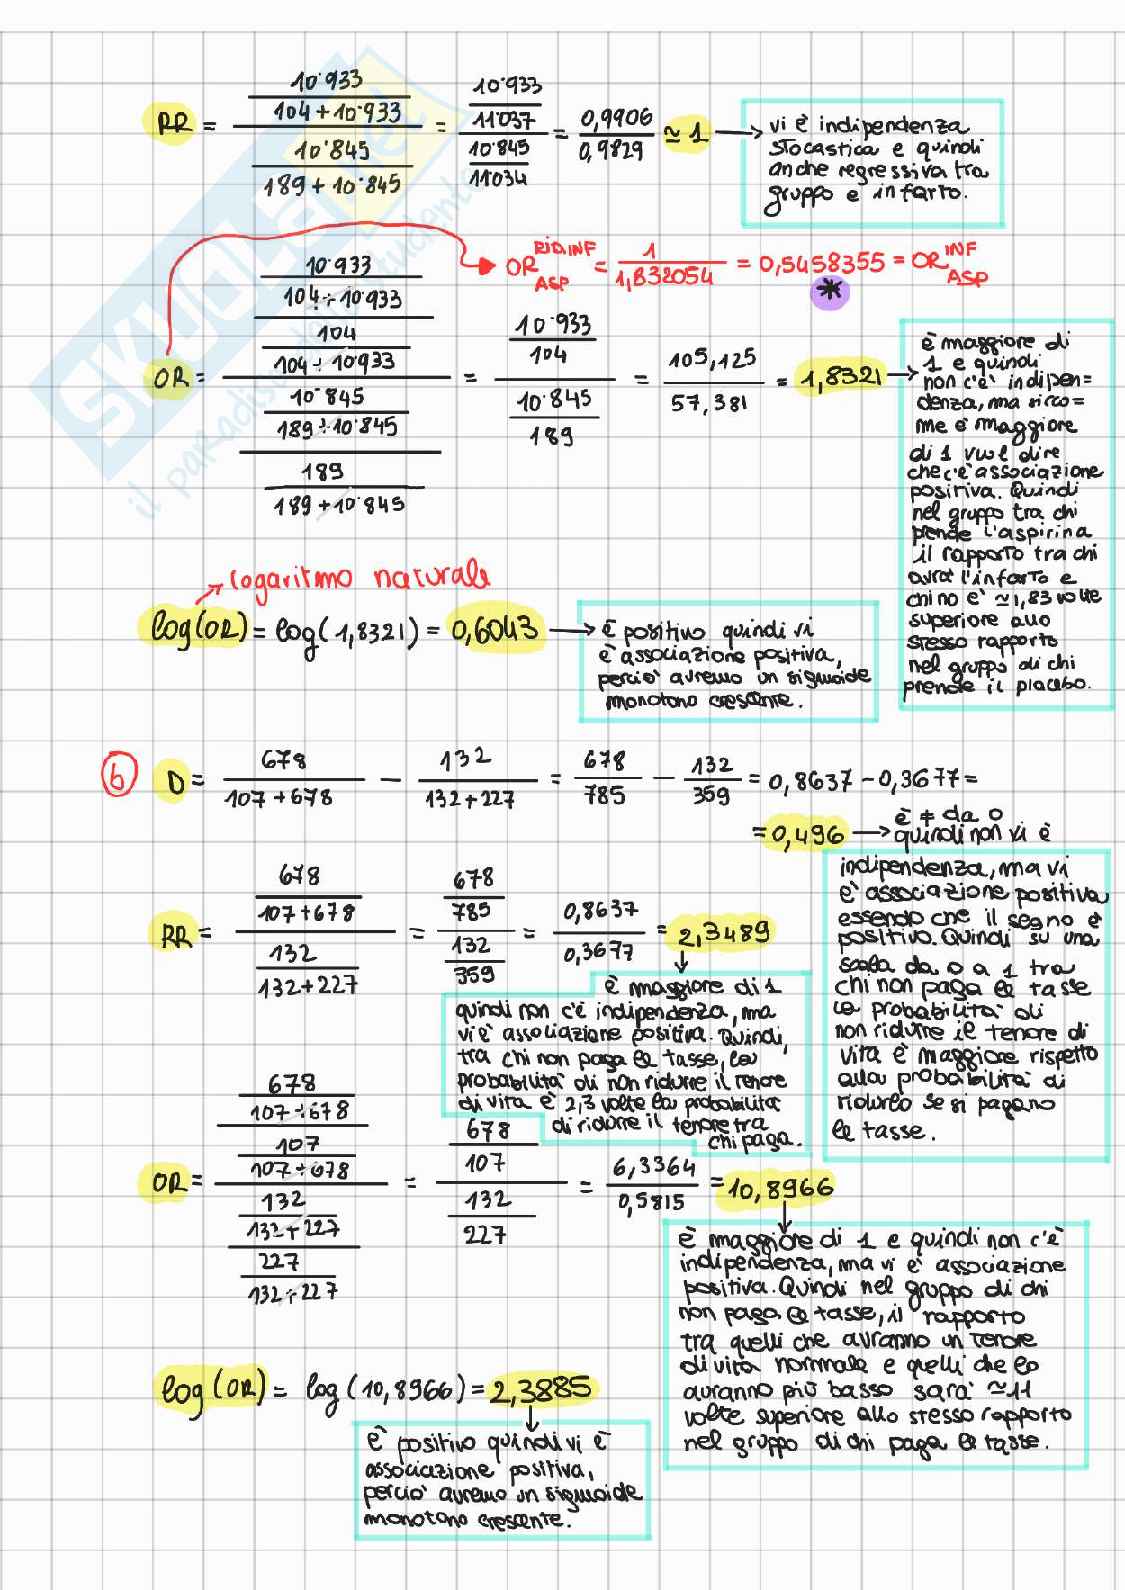 RR = 10˙933 / 104 + 10˙933 / 10˙845 / 189 + 10˙845 = 10˙933 / 11˙037 / 10˙845 / 11034 = 0,9906 / 0,9829 ≃ 1 →
vi è indipendenza
stocastica e quindi
anche regressiva tra
gruppo e infarto.
OR RID.INF ASP = 1 / 1,832054 = 0,5458355 = OR INF ASP
*
OR = 10˙933 / 104 + 10˙933 / 104 / 104 + 10˙933 / 10˙845 / 189 + 10˙845 / 189 / 189 + 10˙845 = 10˙933 / 104 / 10˙845 / 189 = 105,125 / 57,381 = 1,8321 →
è maggiore di
1 e quindi
non c'è indipen=
denza, ma sicco=
me è maggiore
di 1 vuol dire
che c'è associazione
positiva. Quindi
nel gruppo tra chi
prende l'aspirina
il rapporto tra chi
avrà l'infarto e
chi no è ≃1,83 volte
superiore allo
stesso rapporto
nel gruppo di chi
prende il placebo.
logaritmo naturale
log(OR) = log(1,8321) = 0,6043 →
è positivo quindi vi
è associazione positiva,
perciò avremo un sigmoide
monotono crescente.
6 D = 678 / 107 + 678 − 132 / 132 + 227 = 678 / 785 − 132 / 359 = 0,8637 − 0,3677 =
= 0,496 → è ≠ da 0
quindi non vi è
indipendenza, ma vi
è associazione positiva
essendo che il segno è
positivo. Quindi su una
scala da 0 a 1 tra
chi non paga le tasse
la probabilità di
non ridurre il tenore di
vita è maggiore rispetto
alla probabilità di
ridurlo se si pagano
le tasse.
RR = 678 / 107 + 678 / 132 / 132 + 227 = 678 / 785 / 132 / 359 = 0,8637 / 0,3677 = 2,3489
è maggiore di 1
quindi non c'è indipendenza, ma
vi è associazione positiva. Quindi,
tra chi non paga le tasse, la
probabilità di non ridurre il tenore
di vita è 2,3 volte la probabilità
di ridurre il tenore tra
chi paga.
OR = 678 / 107 + 678 / 107 / 107 + 678 / 132 / 132 + 227 / 227 / 132 + 227 = 678 / 107 / 132 / 227 = 6,3364 / 0,5815 = 10,8966
è maggiore di 1 e quindi non c'è
indipendenza, ma vi è associazione
positiva. Quindi nel gruppo di chi
non paga le tasse, il rapporto
tra quelli che avranno un tenore
di vita normale e quelli che lo
avranno più basso sarà ≃11
volte superiore allo stesso rapporto
nel gruppo di chi paga le tasse.
log(OR) = log(10,8966) = 2,3885
è positivo quindi vi è
associazione positiva,
perciò avremo un sigmoide
monotono crescente.
SKUOLA.net
il paradiso dello studente